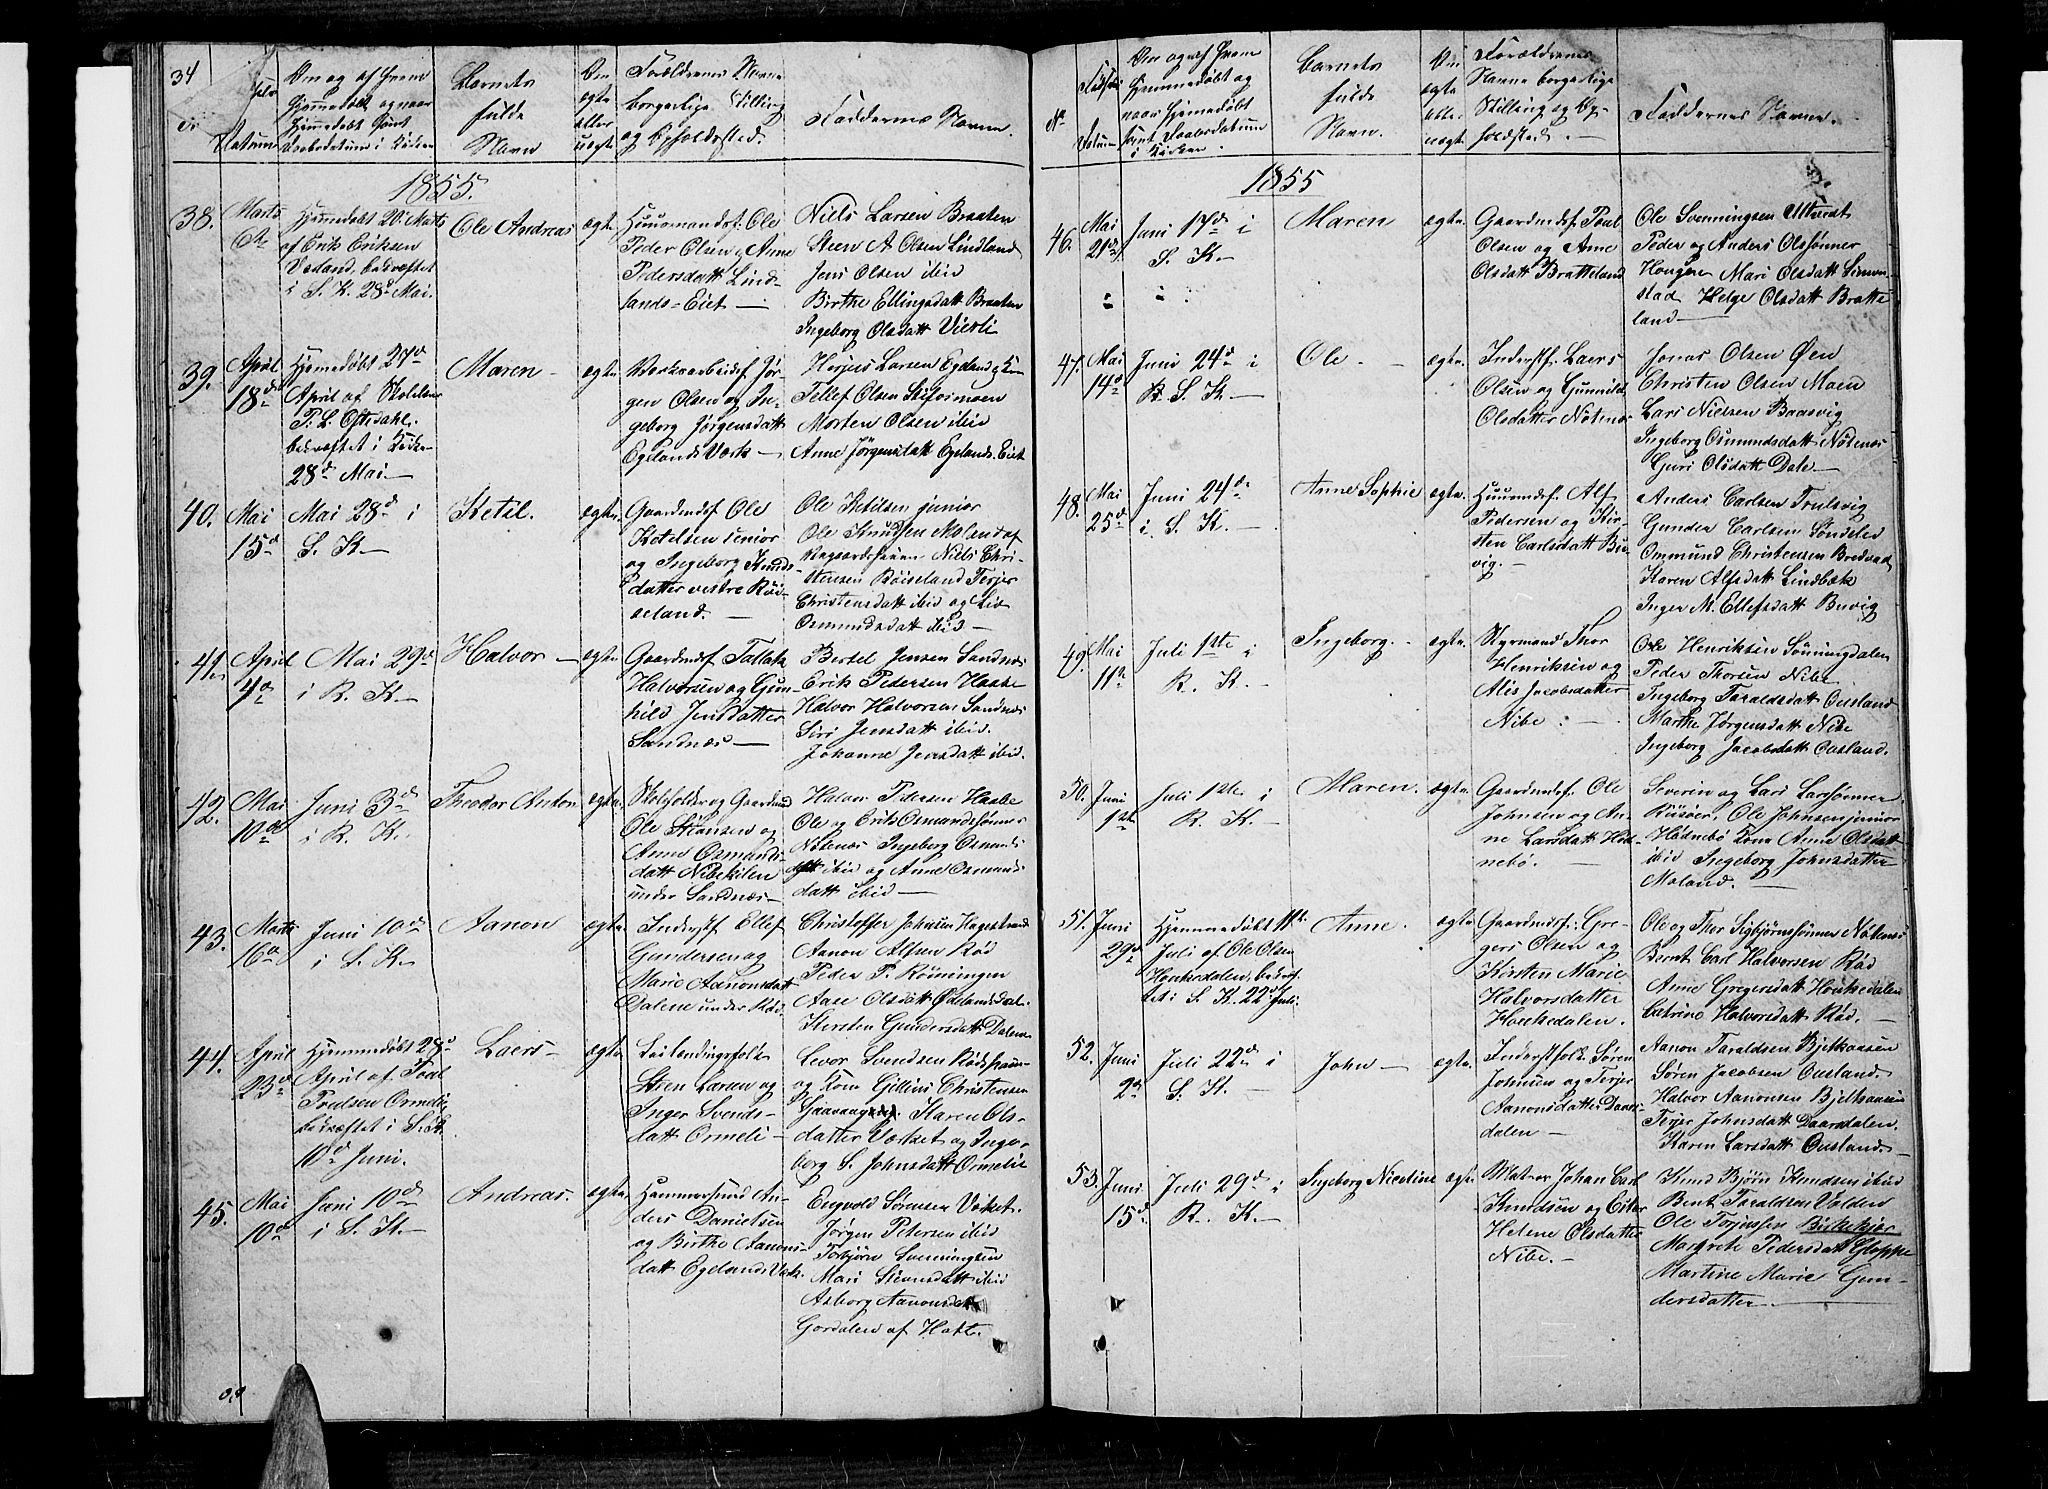 34
Om og af hvem
Hjemmedøbt og naar
Hjemmedøbt samt
Daabsdatum i Kirken
Barnets
fulde
Navn
Om
ægte
eller
uægte
Forældrenes Navne
borgerlige Stilling
og Opholdssted.
Faddernes Navne.
Datum
1855.
38.
Marts
Hjemmedøbt 20. Marts
af Erik Eriksen
bekræftet
i S. K. 28d Mai.
Ole Andreas
ægte
Huusmandsf. Ole
Peder Olsen og Anne
Pedersdatt Lind-
lands-Eiet —
Niels Larsen Braaten
Steen A. Olsen Lindland
Jens Olsen ibid
Birthe Ellingsdatt Braaten
Ingeborg Olsdatt Vierli
39.
April
18de
Hjemmedøbt 27d
April af Skolelær
P. L. Ofsedahl.
bekræftet i Kirke
28d Mai. —
Maren —
ægte
Værksarbeidsf. Jør-
gen Olsen og In-
geborg Jørgensdatt
Egelands Værk —
Larsen Egeland
Tellef Olsen
Morten Olsen ibid
Anne Jörgensdatt Egelands. Eiet
40.
Mai
15d
Mai 28d i
S. K —
Ketil.
ægte
Gaardmdsf Ole
Ketelsen senior
og Ingeborg Knuds-
datter vestre Röi-
seland. —
Ole Ketilsen junior
Ole Knudsen Moland af
Niels Chri-
stensen Röiseland Terjer
Christensdatt ibid og Liv
Osmundsdatt ibid —
41.
April
4d
Mai 29d
i R. K —
Halvor —
ægte
Gaardmdsf Tallak
Halvorsen og Gun-
hild Jensdatter
Sandnæs —
Bertel Jensen Sandnæs
Erik Pedersen Haabe
Halvor Halvorsen Sandnæs
Siri Jensdatt ibid.
Johanne Jensdatt ibid.
42.
Mai
10de
Juni 3d
i R. K.
Theodor Anton
ægte
Skoleholder og Gaardmd
Ole Steansen og
Anne Osmunds-
datt Nibekilen
under Sandnæs —
Halvor Pedersen Haabe
Ole og Erik Osmundsönner
Nötenæs Ingeborg Osmunds
datt ibid og Anne Osmunds
datt ibid —
43.
Marts
16d
Juni 10d
i S. K —
Aanon
ægte
Inderstf Ellef
Gundersen og
Marie Aanonsdatt
Dalene under Röd
Christoffer Johnsen Hagestrand
Aanon Alfsen Röd
Peder P. Röiningen
Aase Olsdatt Ødelandsdal.
Kersten Gundersdatt Dalene
44.
April
23d
Hjemmedøbt 28d
April af Poul
Poulsen Ormelie
bekræftet i S. K.
10d Juni.
Laers —
ægte
Leilendingsfolk
Steen Larsen og
Inger Svends-
datt Ormeli —
Levor Svendsen
og Kone Gillius Christensen
Karen Ols-
datter Værket og Inge-
borg S. Johnsdatt Ormelie
45.
Mai
10d
Juni 10d
i S. K —
Andreas.
ægte
Hammersmed An-
ders Danielsen
og Birthe Aanons-
datt Egelands Værk.
Engvold Sörensen Værket.
Jørgen Petersen ibid
Torbjörn Svenningsen
Mari Steansdatt ibid
Asborg Aanonsdatt
Gordalen af Holt.
No
Fødsels
Datum
Om og af hvem
Hjemmedøbt og
naar Hjemmedøbt
samt Daabsdatum
i Kirken.
Barnets
fulde
Navn.
Om
ægte
eller
uægte
Forældrenes
Navne borgerlige
Stilling og Op-
holdssted. —
Faddernes Navne.
1855
46.
Mai
21de
Juni 17d i
S. K. —
Maren
ægte.
Gaardmdsf. Poul
Olsen og Anne
Olsdatt Bratteland
Ole Svenningsen
Peder og Anders Olssønner
Mari Olsdatt Simon-
stad Helge Olsdatt Bratte-
land —
47.
Mai
14d
Juni 24d i
S. K —
Ole —
ægte.
Inderstf. Laers
Olsen og Gunnild
Olsdatter Nötenæs
Jonas Olsen Øen
Christen Olsen Moen
Lars Nielsen Baasvig
Ingeborg Osmundsdatt Nötenæs
Guri Olsdatt Dale —
48.
Mai
25d
Juni 24de
i S. K. —
Anne Sophie
ægte.
Huusmdsf. Alf
Pedersen og Kir-
sten Carlsdatt Bu-
vig. —
Anders Carlsen Trulsvig
Gunder Carlsen Söndeled
Ommund Christensen Bredvad
Karen Alfsdatt Lindbæk
Inger M. Ellefsdatt Buvig
49.
Mai
11te
Juli 1ste i
R. K. —
Ingeborg. —
ægte.
Styrmand Thor
Henriksen og
Alis Jacobsdatter
Nibe. —
Ole Henriksen Sönningdalen
Peder Thorsen Nibe
Ingeborg Taraldsdatt Ousland
Marthe Jørgensdatt Nibe
Ingeborg Jacobsdatt Ousland.
50.
Juni
1ste
Juli 1ste i
R. K. —
Maren.
ægte.
Gaardmdsf. Ole
Johnsen og An-
ne Larsdatt Hød-
nebö.
Severin og Lars Larssønner
Risöer. Ole Johnsen junior
Hödnebö Kone Anne Olsdatt
ibid Ingeborg Johnsdatter
Moland. —
51.
Juni
29d
Hjemmedøbt 11te
Juli af Ole Olsen
Houkedalen, bekræf-
tet i S. K. 22d Juli.
Anne —
ægte
Gaardmdsf: Gre-
gers Olsen og
Kirsten Marie
Halvorsdatter
Houkedalen.
Ole og Thor Sigbjørnssønner Nötenæs
Bernt Carl Halvorsen Röd
Anne Gregersdatt Houkedalen
Catrine Halvorsdatt Röd. —
52.
Juni
2d
Juli 22d i
S. K. —
John —
ægte.
Inderstfolk Søren
Johnsen og Terjer
Aanonsdatter Daars-
dalen —
Aanon Taraldsen Bjelkaasen
Søren Jacobsen Ousland.
Halvor Aanonsen Bjelkaasen
Terjer Johnsdatt Daarsdalen.
Karen Larsdatt Ousland. —
53.
Juni
15d
Juli 29d i
R. K. —
Ingeborg Nicoline
ægte
Matros Johan Carl
Knudsen og
Helene Olsdatter
Nibe. —
Knud Björn Knudsen ibid
Bent Taraldsen Volden
Ole Terjussen Birkekjær
Margrete Pedersdatt Gloppe
Martine Marie Gun-
dersdatter —